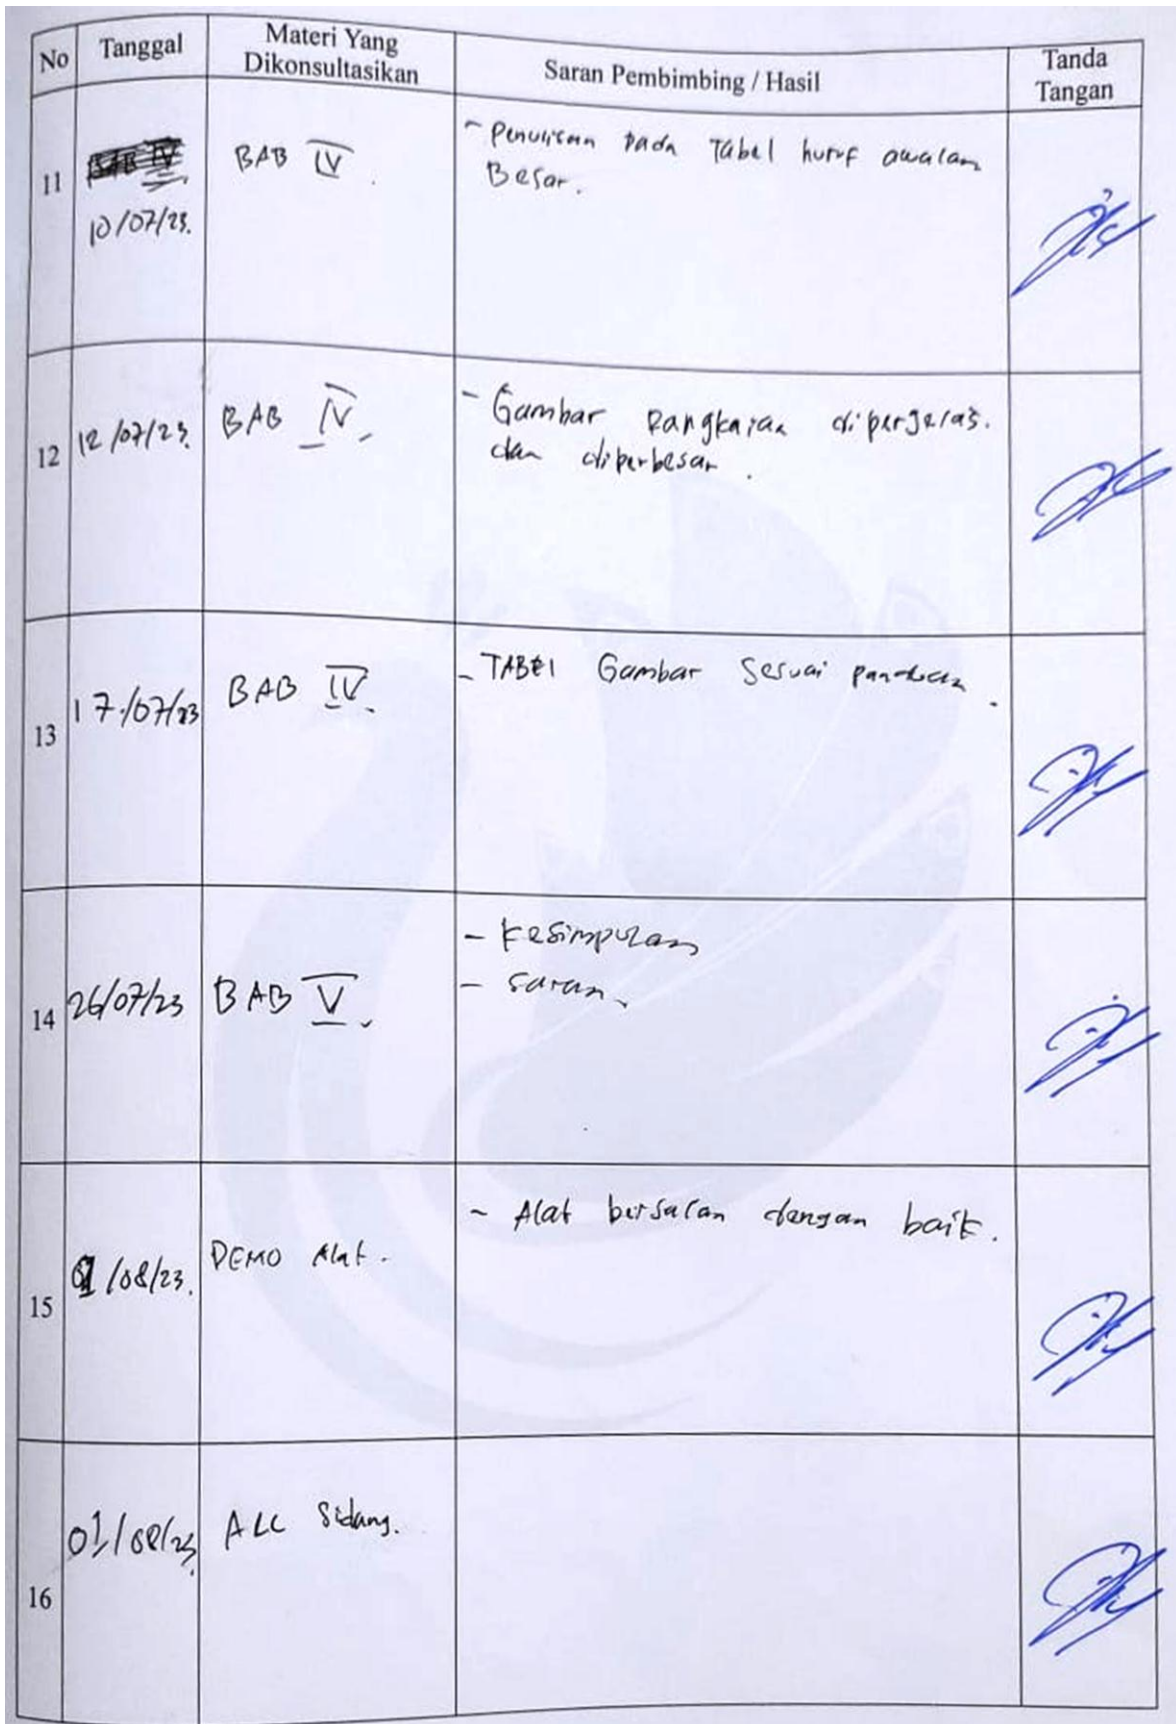 No Tanggal Materi Yang Dikonsultasikan Saran Pembimbing / Hasil Tanda Tangan
11 BAB IV 10/07/23. BAB IV. - Penulisan pada Tabel huruf awalan
Besar.
12 12/07/23. BAB IV. - Gambar Rangkaian diperjelas.
dan diperbesar.
13 17/07/23 BAB IV. - TABEl Gambar Sesuai panduan.
14 26/07/23 BAB V. - Kesimpulan
- Saran.
15 01/08/23. DEMO Alat. - Alat berjalan dengan baik.
16 01/08/23. ACC Sidang.